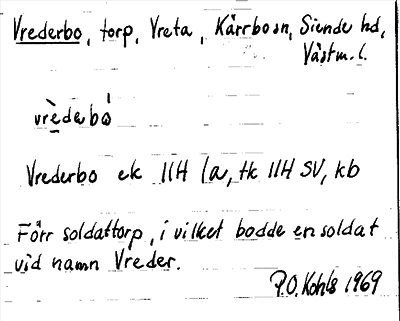 Vrederbo, torp, Vreta, Kärrbo sn, Siende hd,
Västm. l.
vrèderbó
Vrederbo ek 11H 1a, tk 11H SV, kb
Förr soldattorp, i vilket bodde en soldat
vid namn Vreder.
P.O. Kohls 1969